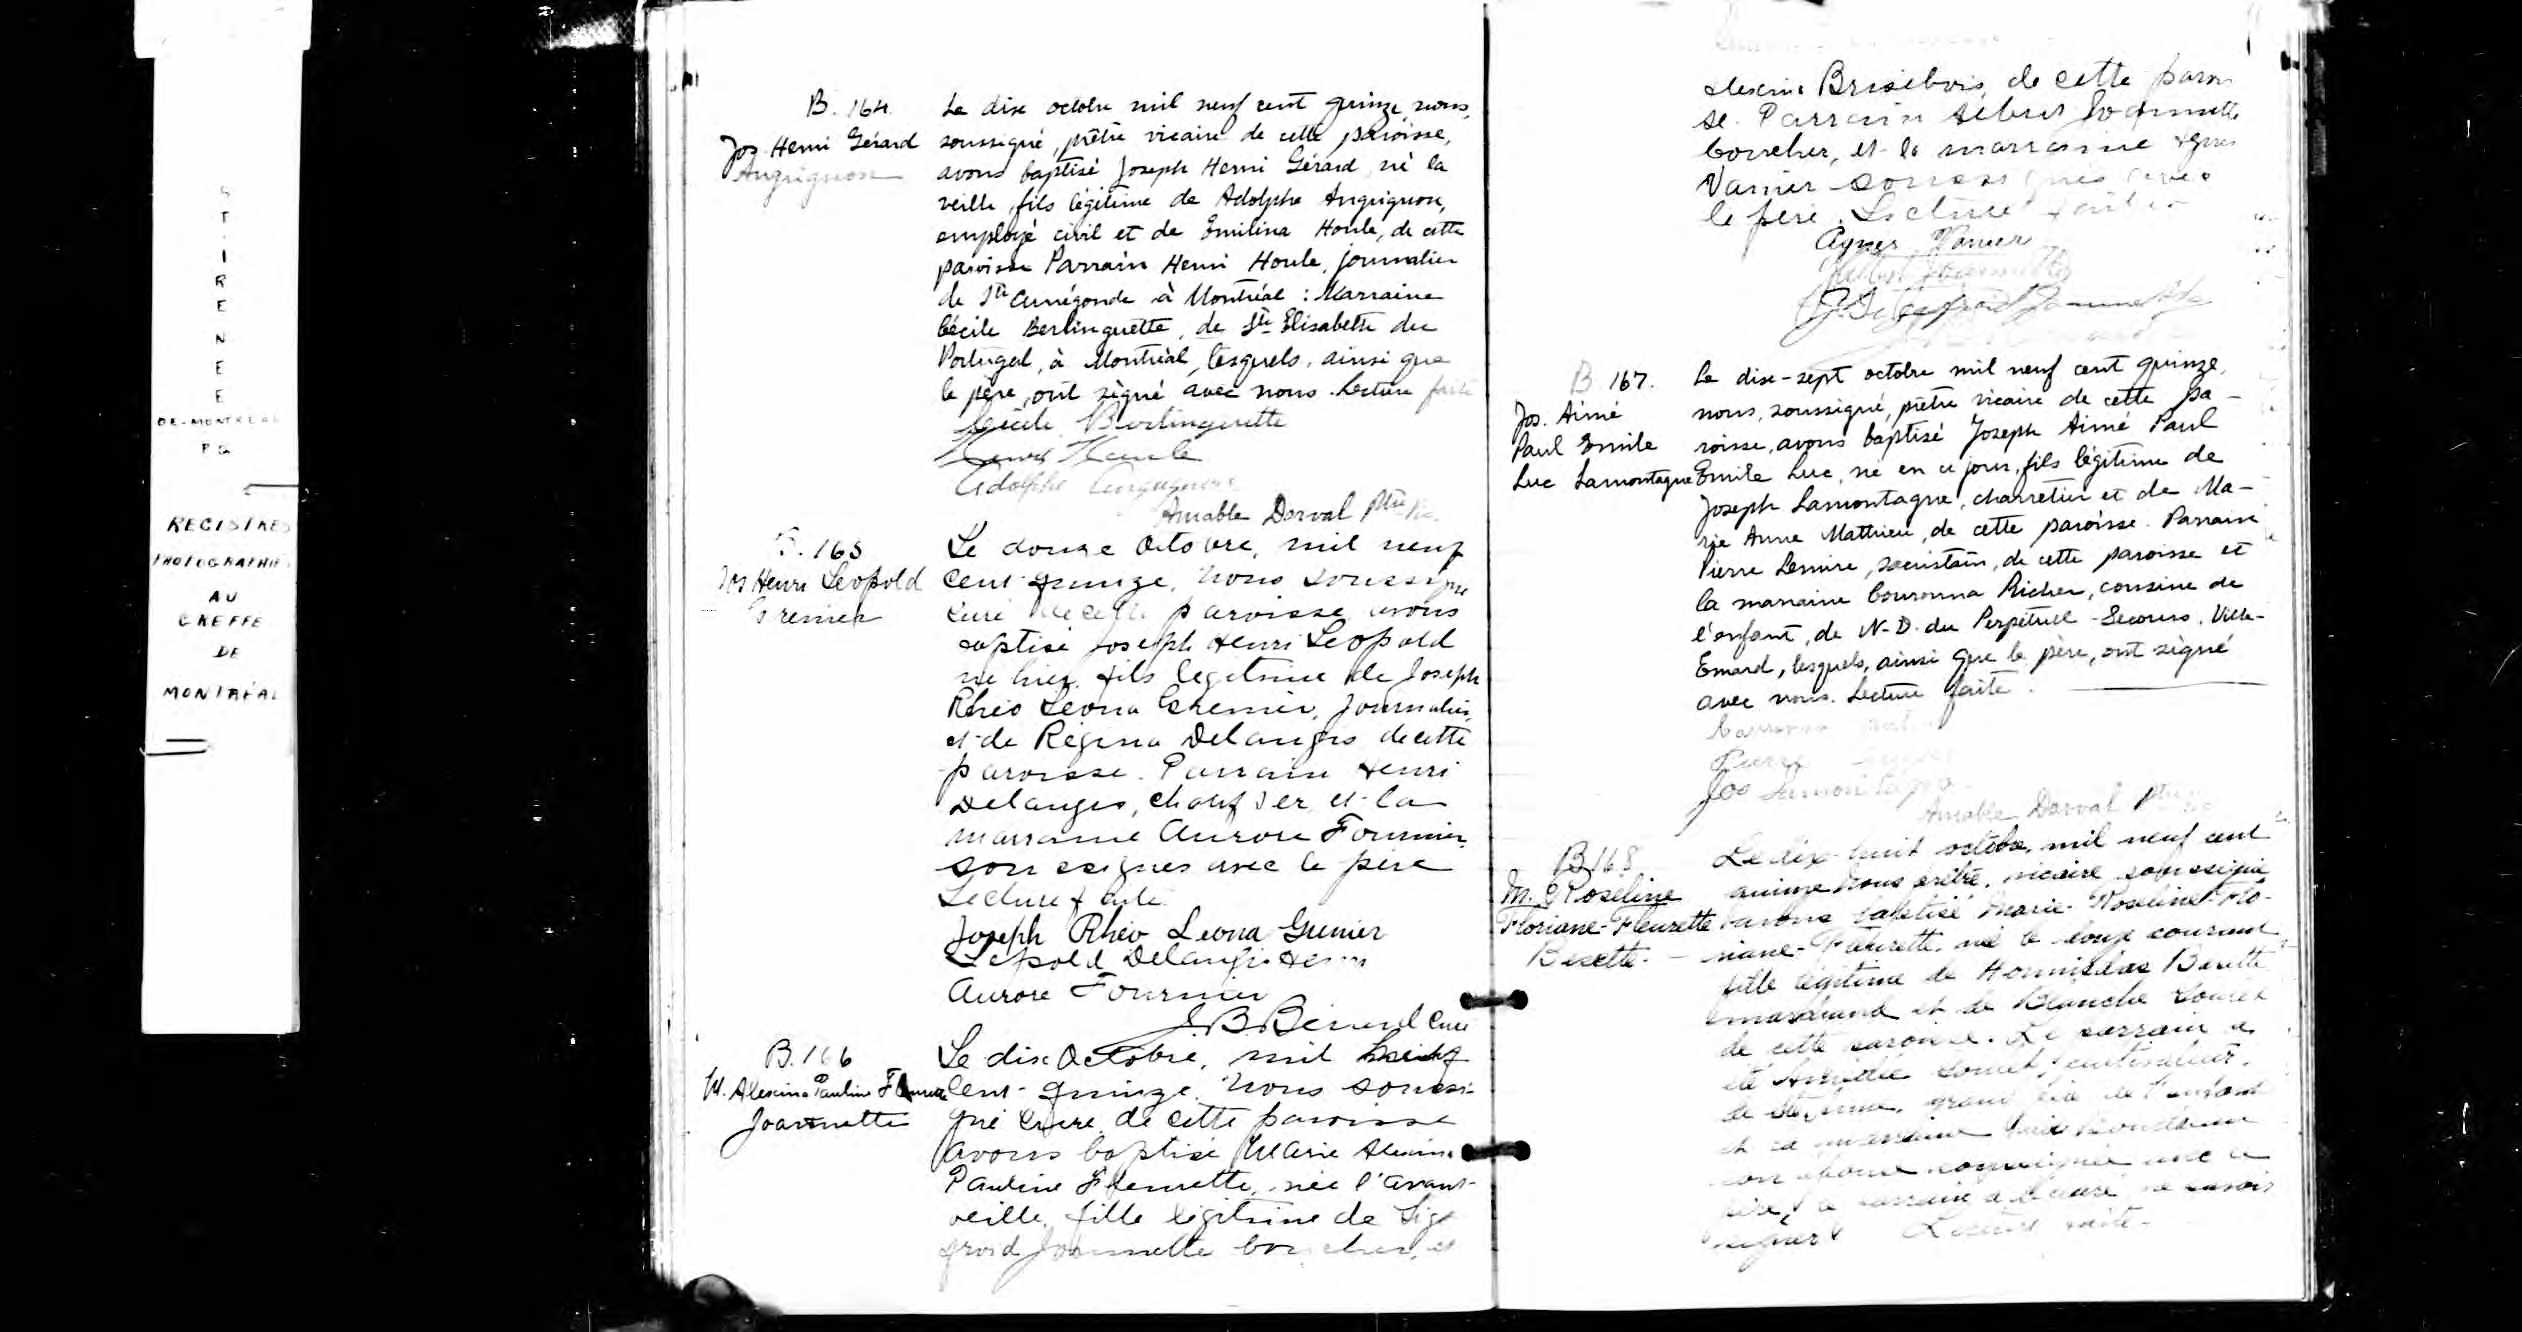 ST.IRENEE
DE-MONTREAL
P.Q.
REGISTRES
PHOTOGRAPHIES
AU
GREFFE
DE
MONTRÉAL
B. 164.
Jos. Henri Gérard
Angrignon
Le dix octobre mil neuf cent quinze, nous,
soussigné, prêtre vicaire de cette paroisse,
avons baptisé Joseph Henri Gérard, né la
veille, fils légitime de Adolphe Angrignon,
employé civil et de Emilina Houle, de cette
paroisse Parrain Henri Houle, journalier
de Ste Cunégonde à Montréal : Marraine
Cécile Berlinguette, de Ste Elisabeth du
Portugal, à Montréal, lesquels, ainsi que
le père, ont signé avec nous. Lecture faite
Cécile Berlinguette
Henri Houle
Adolphe Angrignon
Amable Dorval ptre vic.
B. 165
Jos Henri Leopold
Grenier
Le douze Octobre, mil neuf
cent-quinze, nous soussigné
curé de cette paroisse avons
baptisé Joseph Henri Leopold
né hier, fils legitime de Joseph
Rhéo Léona Grenier, journalier,
et de Régina Delanges de cette
paroisse. Parrain Henri
Delanges, chauffer et la
marraine Aurore Fournier,
soussignes avec le père
Lecture faite.
Joseph Rhéo Leona Grenier
Léopold Delanges Henri
Aurore Fournier
J.B. Berard Curé
B. 166
M. Alexina Pauline Fleurette
Joannette
Le dix Octobre, mil neuf
cent-quinze. Nous soussi-
gné Curé de cette paroisse
avons baptisé Marie Alexina
Pauline Fleurette, née l'avant-
veille, fille légitime de Sige
froid Joannette boucher, et
Alexina Brisebois, de cette parois
se. Parrain Joannette
boucher, et la marraine Agnes
Vanier soussignés avec
le père. Lecture faite
Agnes Vanier
Joannette
Joannette
B. 167.
Jos. Aimé
Paul Emile
Luc Lamontagne
Le dix-sept octobre mil neuf cent quinze,
nous, soussigné, prêtre vicaire de cette pa-
roisse, avons baptisé Joseph Aimé Paul
Emile Luc, né en ce jour, fils légitime de
Joseph Lamontagne, charretier et de Ma-
rie Anne Mathieu, de cette paroisse. Parrain
Pierre Lemire, sacristain, de cette paroisse et
la marraine Couronna Richer, cousine de
l'enfant, de N-D. du Perpétuel-Secours, Ville-
Emard, lesquels, ainsi que le père, ont signé
avec nous. Lecture faite.
Pierre
Jos Lamontagne
Amable Dorval ptre
B. 168
M. Roseline
Floriane-Fleurette
Bezette.
Le dix-huit octobre, mil neuf cent
quinze nous prêtre, vicaire soussigné,
avons baptisé Marie-Roseline-Flo-
riane-Fleurette, née le onze courant
fille légitime de Hormisdas Bezette
marchand et de Blanche
de cette paroisse. Le parrain a
été
de grand père de l'enfant
et la marraine
son épouse soussignée avec le
père, le parrain a déclaré ne savoir
signer. Lecture faite.